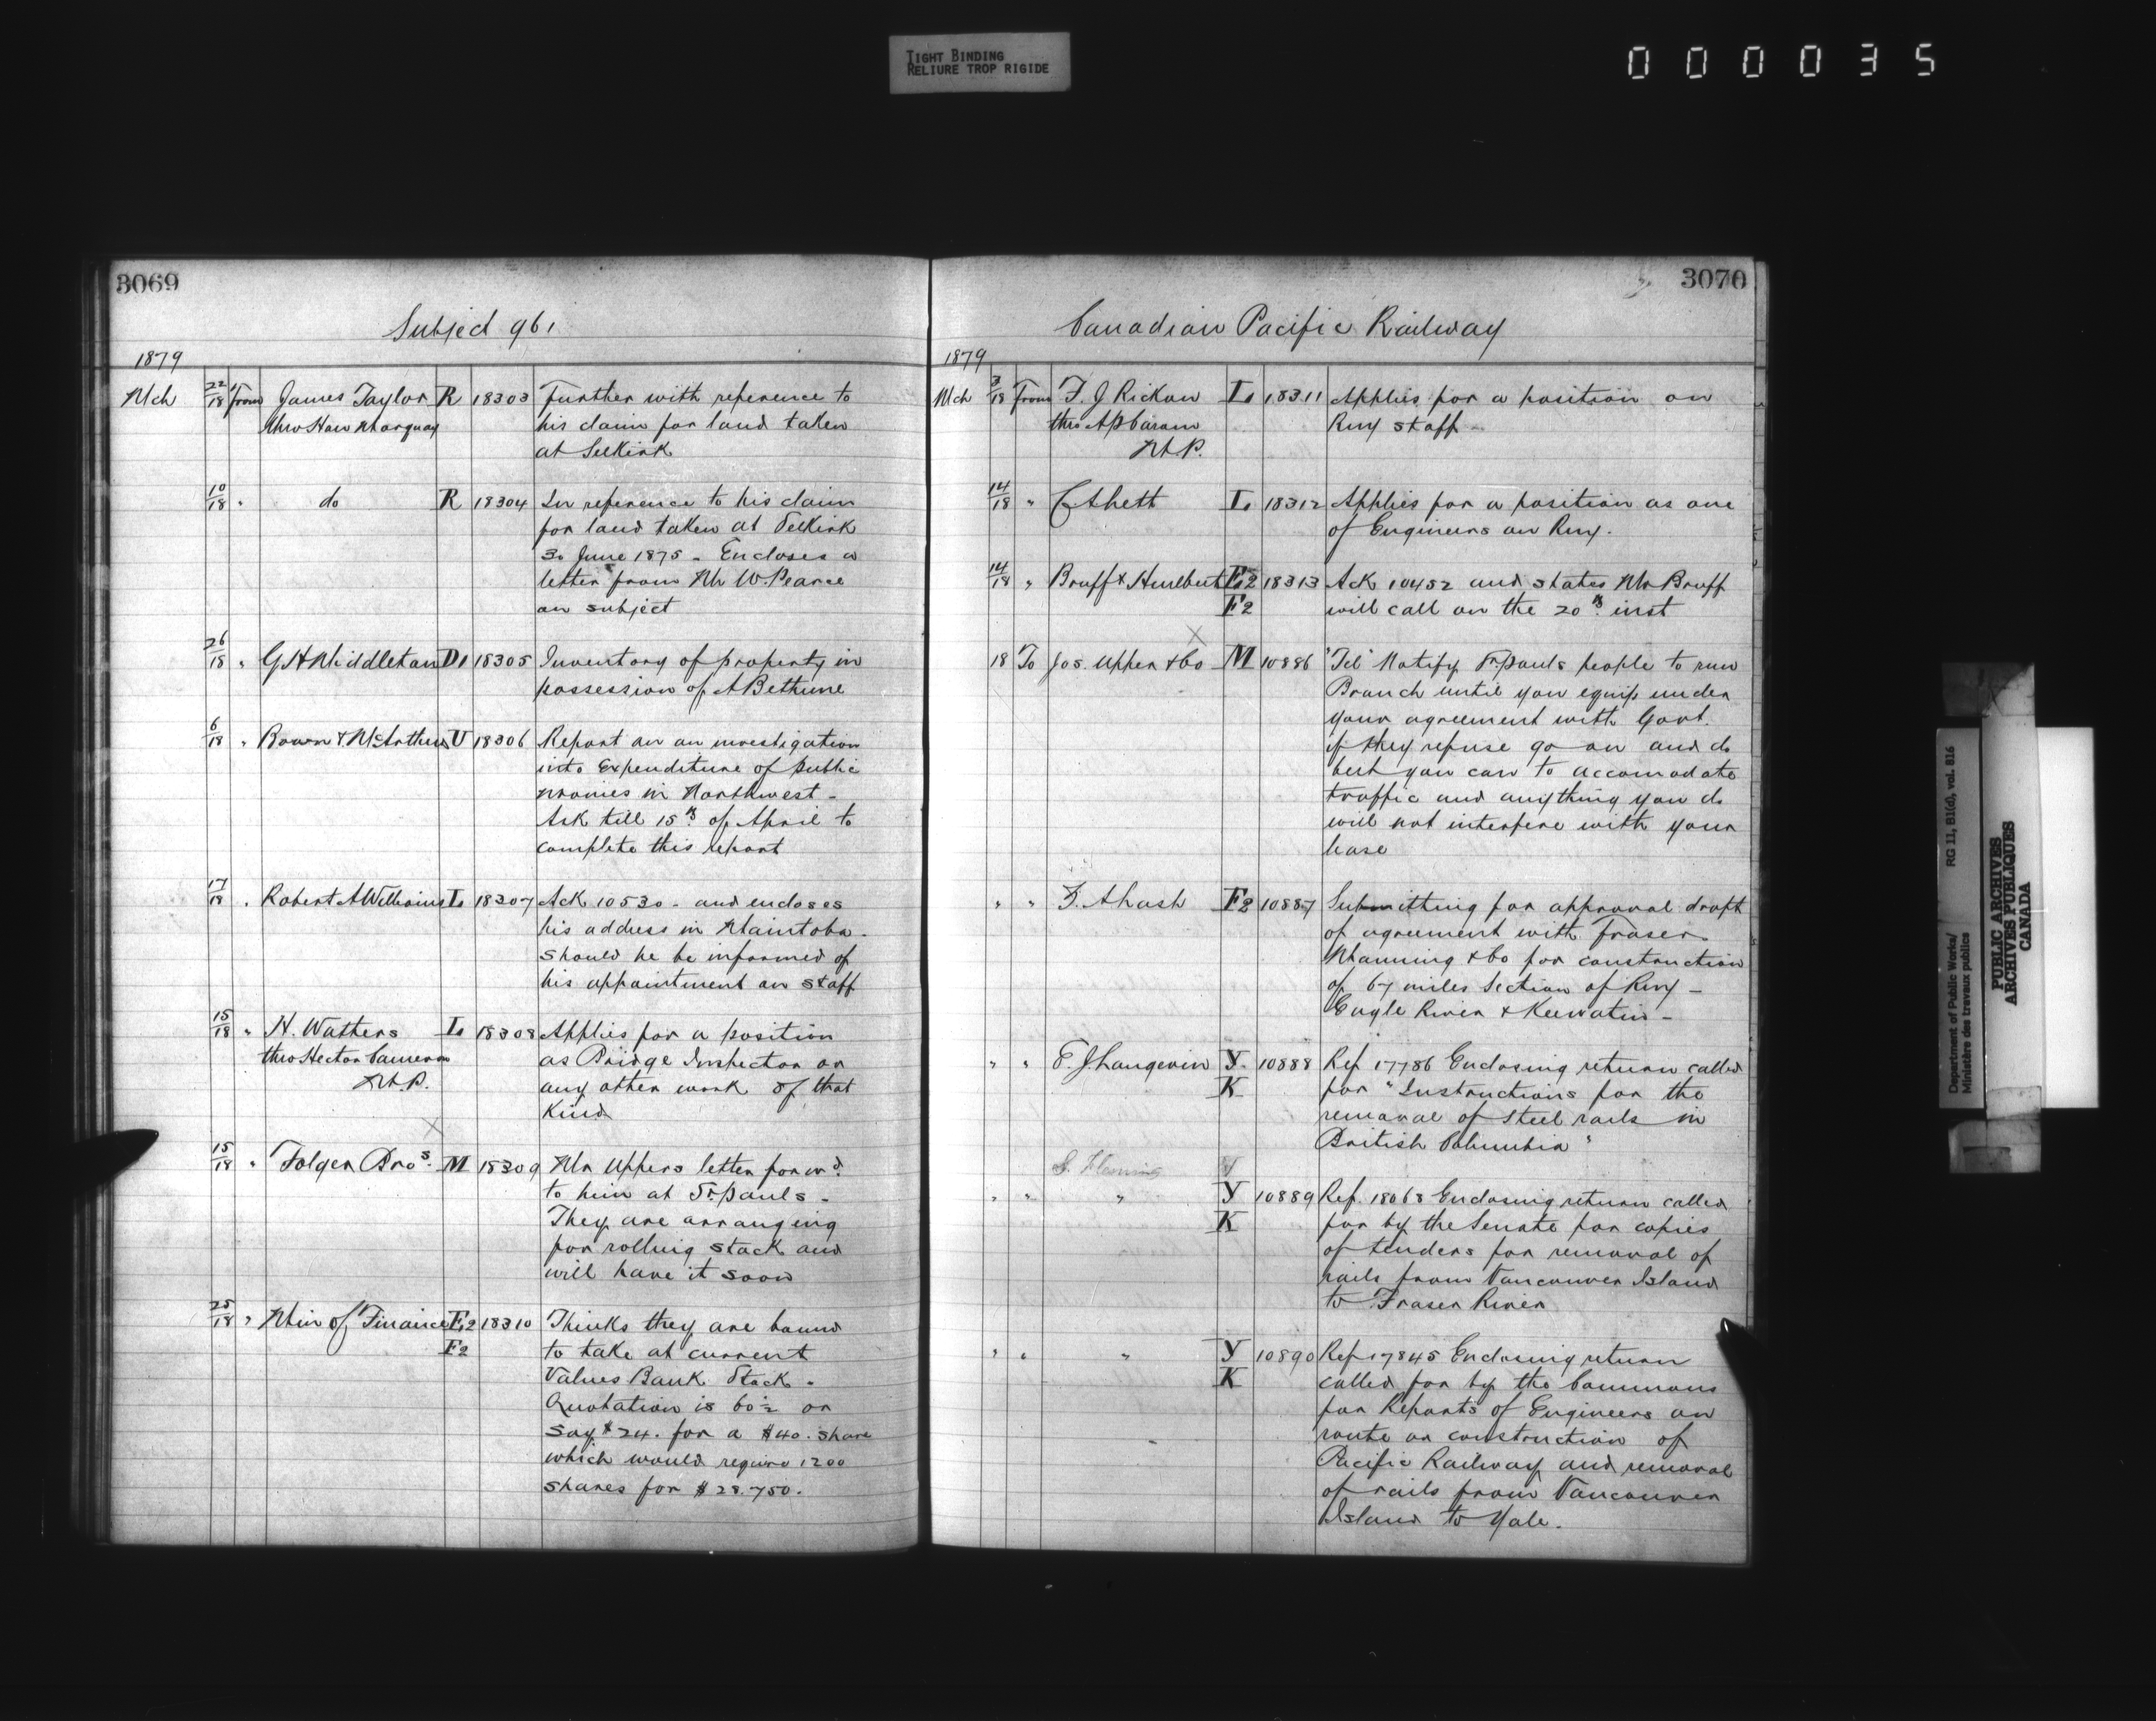 TIGHT BINDING
RELIURE TROP RIGIDE
000035
3069
Subject 961
1879
Mch 22/18 from James Taylor R 18303 Further with reference to
thro Hon Norquay his claim for land taken
at Selkirk
10/18 " do R 18304 In reference to his claim
for land taken at Selkirk
30 June 1875 - Encloses a
letter from Mr W. Pearce
on subject
26/18 " G H Middleton D1 18305 Inventory of property in
possession of A Bethune
6/18 " Bowen & McArthur U 18306 Report on an investigation
into Expenditure of public
monies in Northwest -
Ask till 15th of April to
complete this report
17/18 " Robert A Williams L 18307 Ack 10530 - and encloses
his address in Maintoba -
should he be informed of
his appointment on staff
15/18 " H. Watters L 18308 Applies for a position
thro Hector Cameron as Bridge Inspector or
M.P. any other work of that
Kind
15/18 " Folger Bros. M 18309 Mr Uppers letter forwd.
to him at St pauls -
They are arranging
for rolling stock and
will have it soon
25/18 " Min of Finance E2 18310 Thinks they are bound
F2 to take at current
Values Bank Stock -
Quotation is 60½ or
say $24. for a $40. share
which would require 1200
shares for $28.750.
3070
Canadian Pacific Railway
1879
Mch 3/18 From F. J. Rickon L 18311 Applies for a position on
thro Rwy staff -
M.P.
14/18 " L 18312 Applies for a position as one
of Engineers on Rwy.
14/18 " Bruff & Hurlbert E2 18313 Ack 10452 and states Mr Bruff
F2 will call on the 20th inst
18 To Jos. Upper & Co M 10886 "Tel" Notify St pauls people to run
Branch until you equip under
your agreement with Govt.
if they refuse go on and do
best you can to accomodate
traffic and anything you do
will not interfere with your
lease
" " Z. A Lash F2 10887 Submitting for approval draft
of agreement with Fraser
Manning & Co for construction
of 67 miles Section of Rwy -
Eagle River & Keewatin -
" " E. J Langevin Y 10888 Ref 17786 Enclosing return called
K for "Instructions for the
removal of Steel rails in
British Columbia"
S. Fleming
" " " Y 10889 Ref. 18068 Enclosing return called
K for by the Senate for copies
of tenders for removal of
rails from Vancouver Island
to Fraser River
" " " Y 10890 Ref 17845 Enclosing return
K called for by the Commons
for Reports of Engineers on
route or construction of
Pacific Railway and removal
of rails from Vancouver
Island to Yale.
Department of Public Works/ RG 11, B1(d), vol. 816
Ministère des travaux publics
PUBLIC ARCHIVES
ARCHIVES PUBLIQUES
CANADA